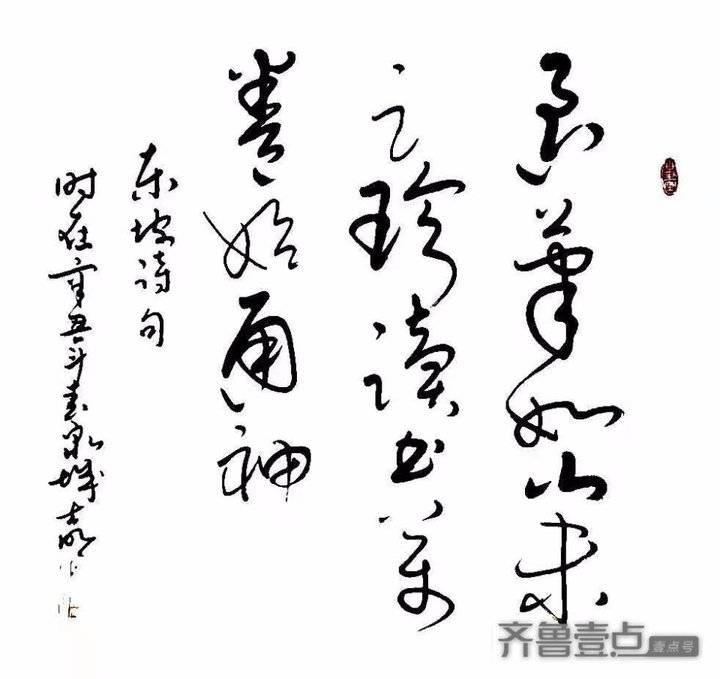 退筆如山未
足珍讀书萬
卷始通神
东坡诗句
时在辛丑年春泉城
齐鲁壹点 壹点号